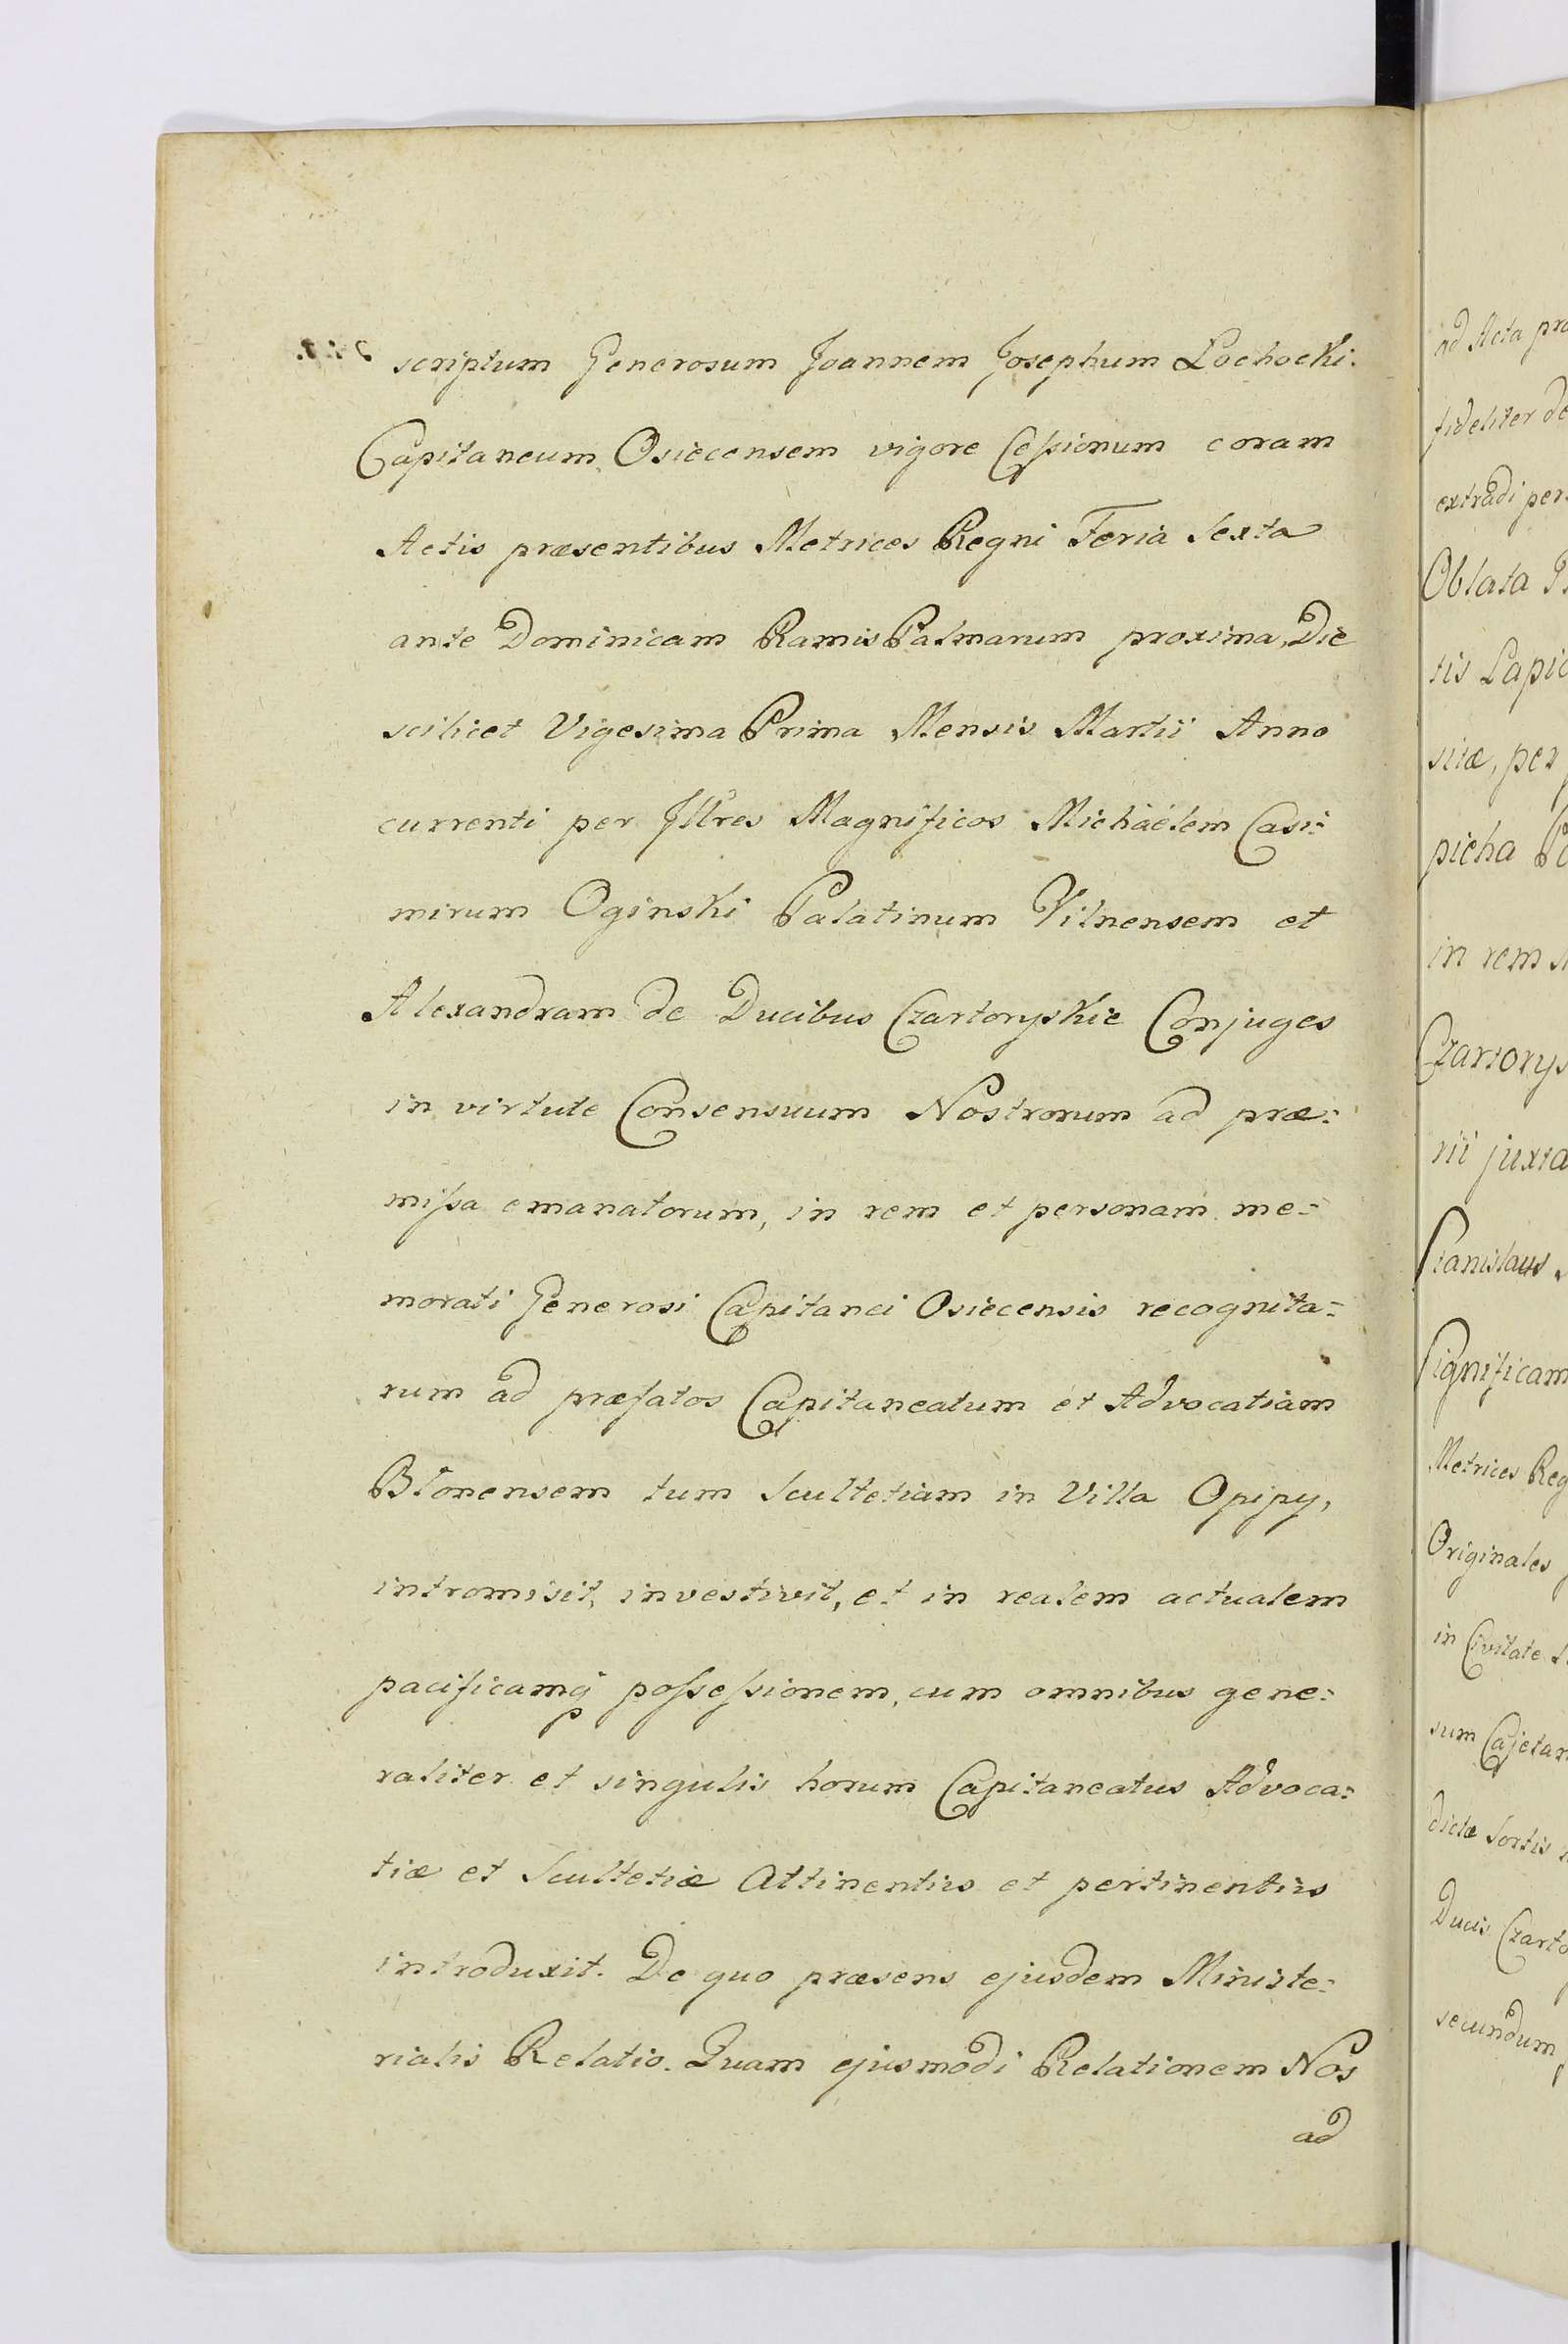 scriptum Generosum Joannem Josephum Lochocki
Capitaneum Osiecensem vigore Cessionum coram
Actis præsentibus Metrices Regni Feria Sexta
ante Dominicam Ramis Palmarum proxima, Die
scilicet Vigesima Prima Mensis Martii Anno
currenti per Illres Magnificos Michaëlem Casi=
mirum Oginski Palatinum Vilnensem et
Alexandram de Ducibus Czartoryskie Conjuges
in virtute Consensuum Nostrorum ad præ=
missa emanatorum, in rem et personam me=
morati Generosi Capitanei Osiecensis recognita=
rum ad præfatos Capitaneatum et Advocatiam
Blonensem tum Scultetiam in Villa Opipy,
intromisit, investivit, et in realem actualem
pacificamq possessionem, cum omnibus gene=
raliter et singulis horum Capitaneatus Advoca=
tiæ et Scultetiæ Attinentiis et pertinentiis
introduxit. De quo præsens ejusdem Ministe=
rialis Relatio. Quam ejusmodi Relationem Nos
ad
ad Acta pro
fideliter de
extradi per
Oblata
tis Lapic
sitæ, per
picha
in rem
Czartorys
rii juxta
Stanislaus
Significam
Metrices Reg
Originales
in Civitate
sum Cajetan
dictæ Sortis
Ducis Czarto
secundum